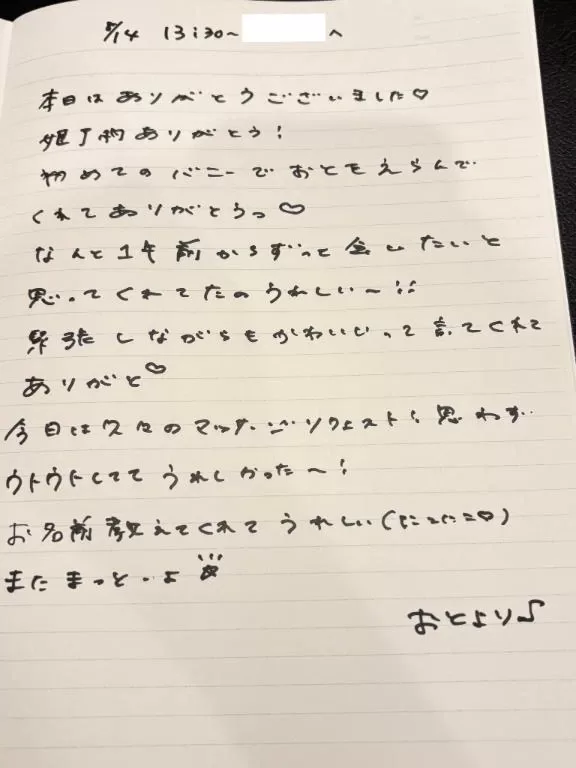 5/14 13:30〜 へ
本日はありがとうございました♡
ありがとう！
初めてのバニーでおとをえらんで
くれてありがとうっ♡
なんと1年前からずっと会いたいと
思ってくれてたのうれしい〜!!
緊張しながらもかわいいって言てくれて
ありがと♡
今日は久々のマッサージリクエスト！思わず
ウトウトしててうれしかった〜！
お名前教えてくれてうれしい(にこにこ♡)
またまっとーよ
おとより♪